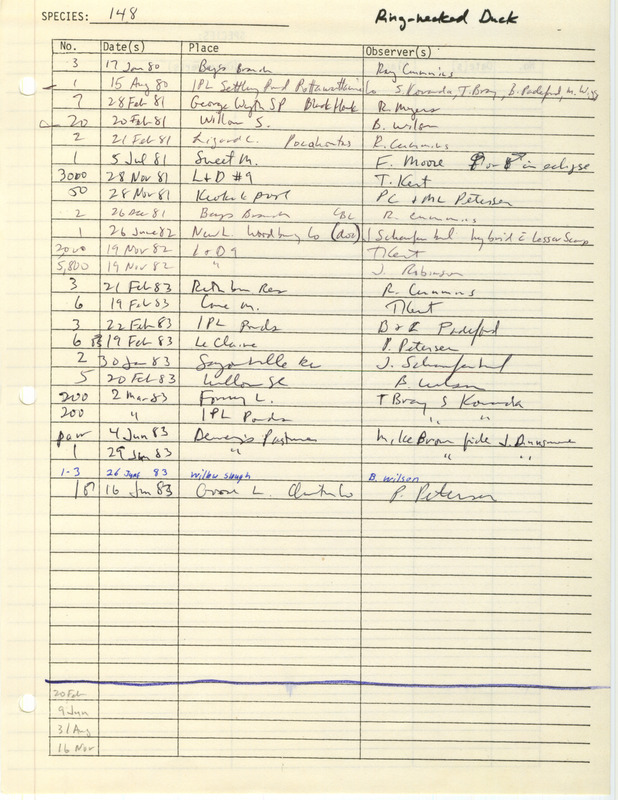 SPECIES: 148 Ring-necked Duck
No. Date(s) Place Observer(s)
3 17 Jan 80 Bays Branch Ray Cummins
1 15 Aug 80 IPL Settling Pond Pottawattamie Co S. Kovanda, T. Bray, B. Padelford, M. Wiggs
7 28 Feb 81 George Wyth SP Black Hawk R. Myers
20 20 Feb 81 Willow S. B. Wilson
2 21 Feb 81 Lizard L. Pocahontas R. Cummins
1 5 Jul 81 Sweet M. F. Moore ♀ or in eclipse
3000 28 Nov 81 L+D #9 T. Kent
50 28 Nov 81 Keokuk pool PC & ML Petersen
2 26 Dec 81 Bays Branch CBC R. Cummins
1 26 June 82 New L. Woodbury Co (doc) J Schaufenbuel hybrid c Lesser Scaup
2000 19 Nov 82 L+D 9 TKent
5,800 19 Nov 82 " J. Robinson
3 21 Feb 83 Rathbun Res R. Cummins
6 19 Feb 83 Cone M. TKent
3 22 Feb 83 IPL Ponds B & L Padelford
6 19 Feb 83 Le Claire P. Petersen
2 30 Jan 83 Saylorville Res J. Schaufenbuel
5 20 Feb 83 Willow Sl B. Wilson
200 2 Mar 83 Forney L. T Bray S Kovanda
200 " IPL Ponds " "
pair 4 Jun 83 Dewey's Pasture Mike Brown fide J. Dinsmore
1 29 Jun 83 " " "
1-3 26 June 83 Wilbur slough B. Wilson
1♂ 16 Jun 83 Goose L. Clinton Co P. Petersen
20 Feb
9 Jun
31 Aug
16 Nov